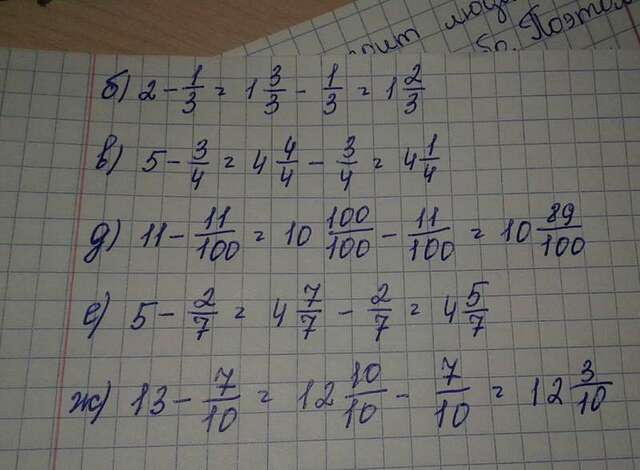 пит люд
бр. Поэтом
б) 2 - 1/3 = 1 3/3 - 1/3 = 1 2/3
в) 5 - 3/4 = 4 4/4 - 3/4 = 4 1/4
д) 11 - 11/100 = 10 100/100 - 11/100 = 10 89/100
е) 5 - 2/7 = 4 7/7 - 2/7 = 4 5/7
ж) 13 - 7/10 = 12 10/10 - 7/10 = 12 3/10